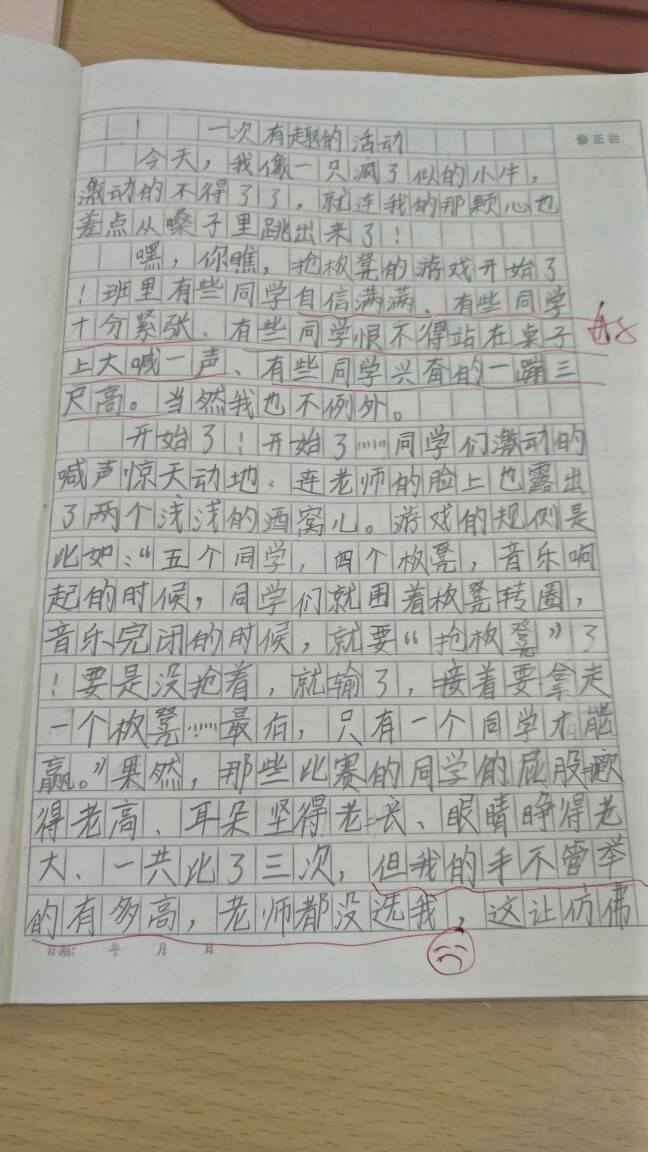 一次有趣的活动
修正栏
今天，我像一只疯了似的小牛，
激动的不得了了，就连我的那颗心也
差点从嗓子里跳出来了！
嘿，你瞧，抢板凳的游戏开始了
！班里有些同学自信满满、有些同学
十分紧张、有些同学恨不得站在桌子
上大喊一声、有些同学兴奋的一蹦三
尺高。当然我也不例外。
开始了！开始了……同学们激动的
喊声惊天动地、连老师的脸上也露出
了两个浅浅的酒窝儿。游戏的规则是
比如：“五个同学，四个板凳，音乐响
起的时候，同学们就围着板凳转圈，
音乐完闭的时候，就要“抢板凳”了
！要是没抢着，就输了，接着要拿走
一个板凳……最后，只有一个同学才能
赢。”果然，那些比赛的同学的屁股撅
得老高、耳朵竖得老长、眼睛睁得老
大、一共比了三次，但我的手不管举
的有多高，老师都没选我，这让仿佛
日期： 年 月 日